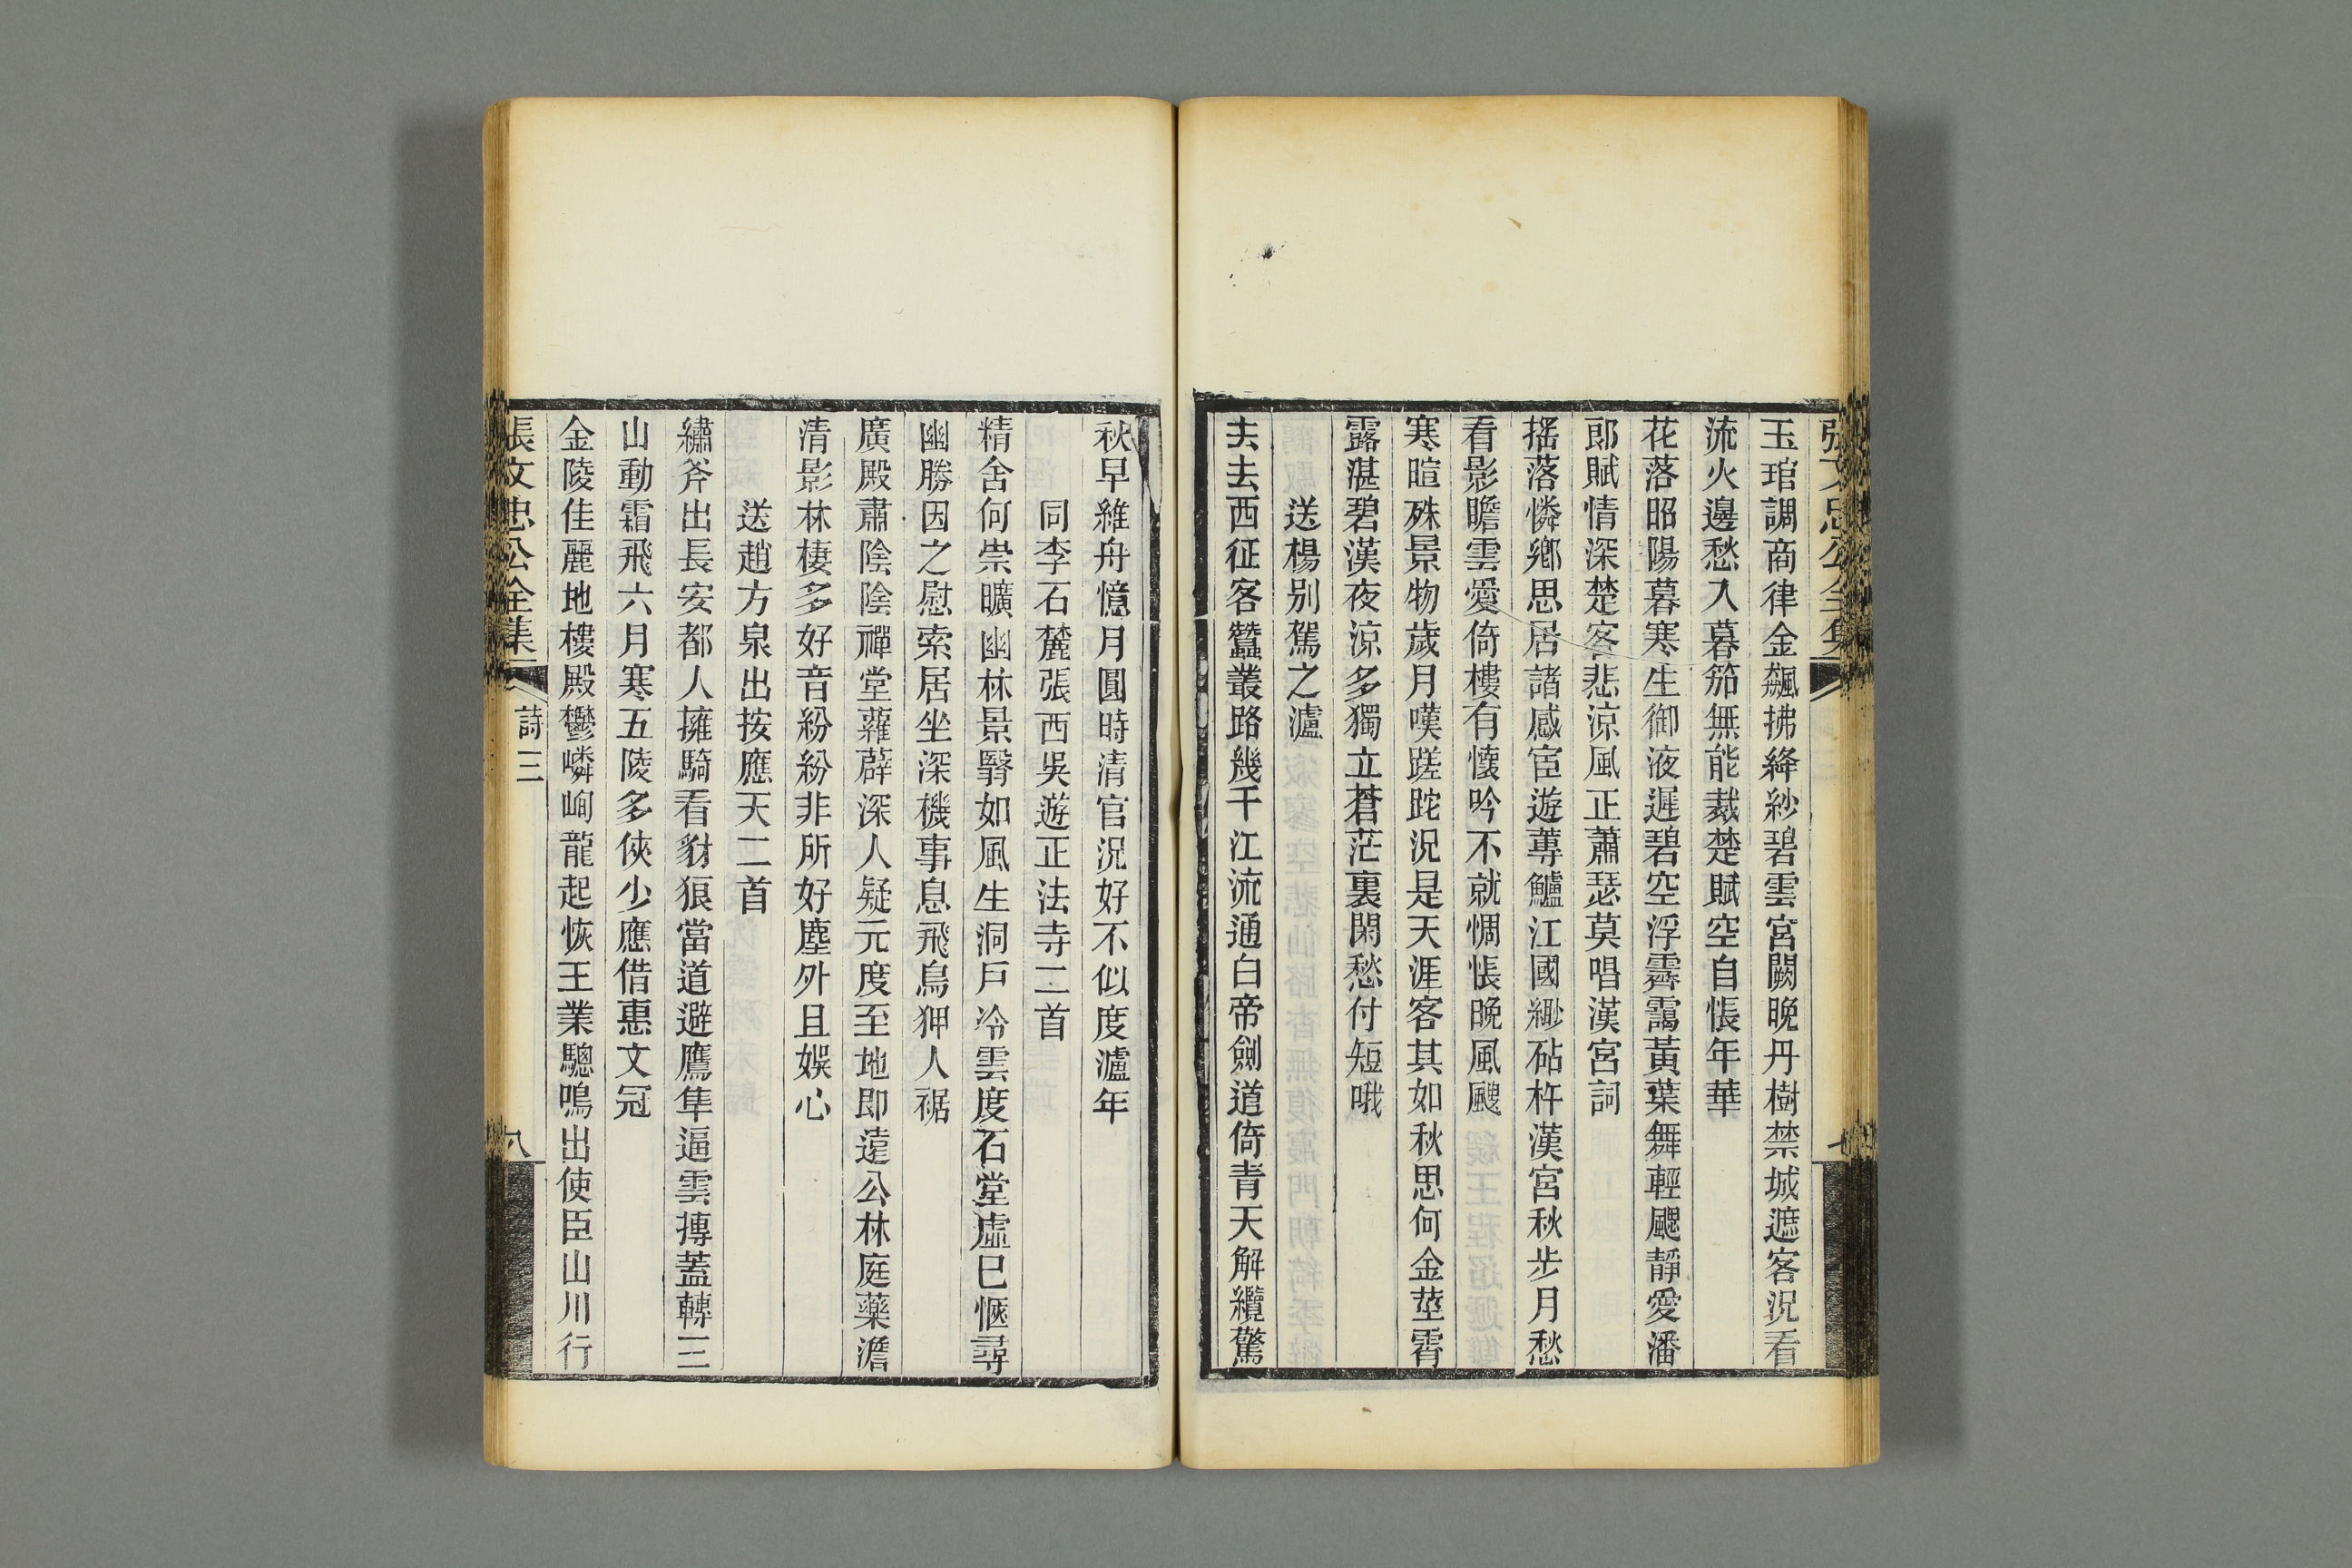 張文忠公全集
玉琯調商律金飆拂絳紗碧雲宮闕晚丹樹禁城遮客況看
流火邊愁入暮笳無能裁楚賦空自悵年華
花落昭陽暮寒生御液遲碧空浮霽靄黃葉舞輕颸靜愛潘
郎賦情深楚客悲涼風正蕭瑟莫唱漢宮詞
搖落憐鄉思居諸感宦遊蓴鱸江國緲砧杵漢宮秋步月愁
看影瞻雲愛倚樓有懷吟不就惆悵晚風颼
寒暄殊景物歲月嘆蹉跎況是天涯客其如秋思何金莖霄
露湛碧漢夜涼多獨立蒼茫裏閑愁付短哦
送楊別駕之瀘
去去西征客蠶叢路幾千江流通白帝劍道倚青天解纜驚
秋早維舟憶月圓時清官況好不似度瀘年
同李石麓張西吳遊正法寺二首
精舍何崇曠幽林景翳如風生洞戶冷雲度石堂虛巳愜尋
幽勝因之慰索居坐深機事息飛鳥狎人裾
廣殿肅陰陰禪堂蘿薜深人疑元度至地即遠公林庭藥澹
清影林棲多好音紛紛非所好塵外且娛心
送趙方泉出按應天二首
繡斧出長安都人擁騎看豺狼當道避鷹隼逼雲摶蓋轉三
山動霜飛六月寒五陵多俠少應借惠文冠
金陵佳麗地樓殿鬱嶙峋龍起恢王業驄鳴出使臣山川行
張文忠公全集
詩三
八